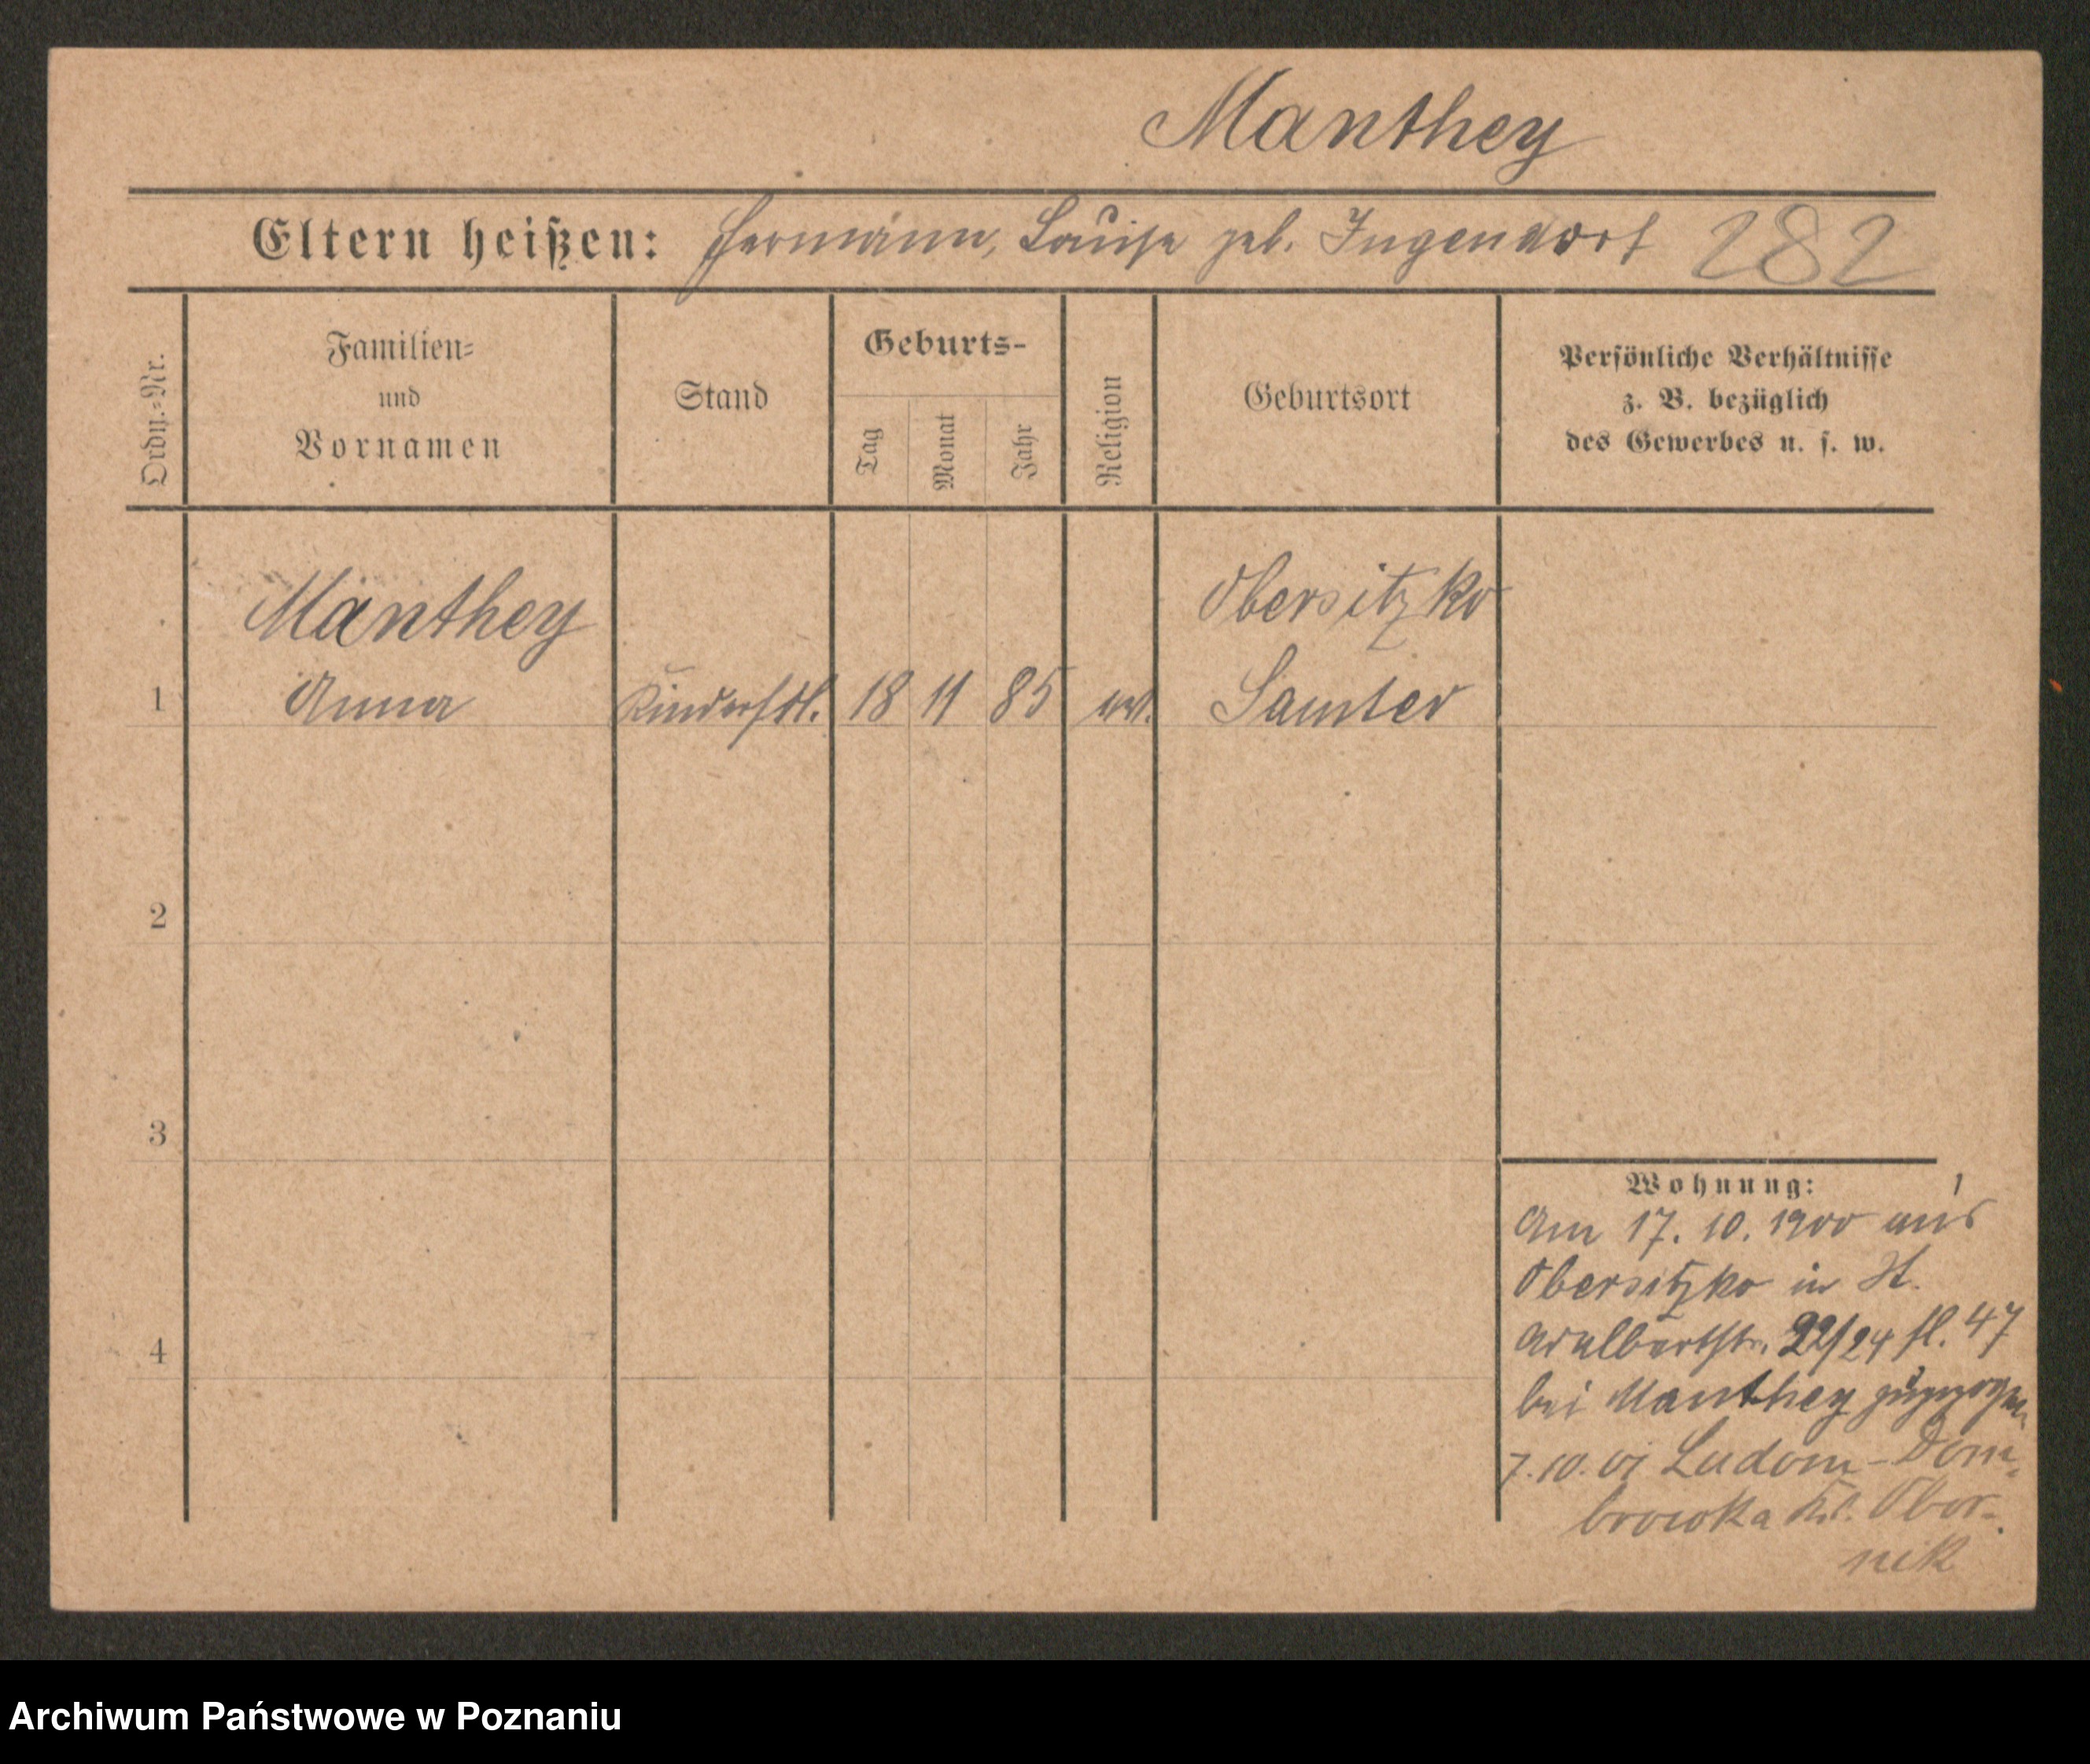 Manthey
Eltern heißen: Hermann, Louise geb. Ingendorf 282
Ordn.-Nr.
Familien-
und
Vornamen
Stand
Geburts-
Tag
Monat
Jahr
Religion
Geburtsort
Persönliche Verhältnisse
z. B. bezüglich
des Gewerbes u. s. w.
Manthey
Obersitzko
1 Anna Kinderfrl. 18 11 85 ev. Samter
2
3
4
Wohnung:
Am 17. 10. 1900 aus
Obersitzko in St.
Adalbertstr. 22/24 fl. 47
bei Manthey zugezogen
7. 10. 01 Ludom-Dom-
browka Kr. Obor-
nik
Archiwum Państwowe w Poznaniu